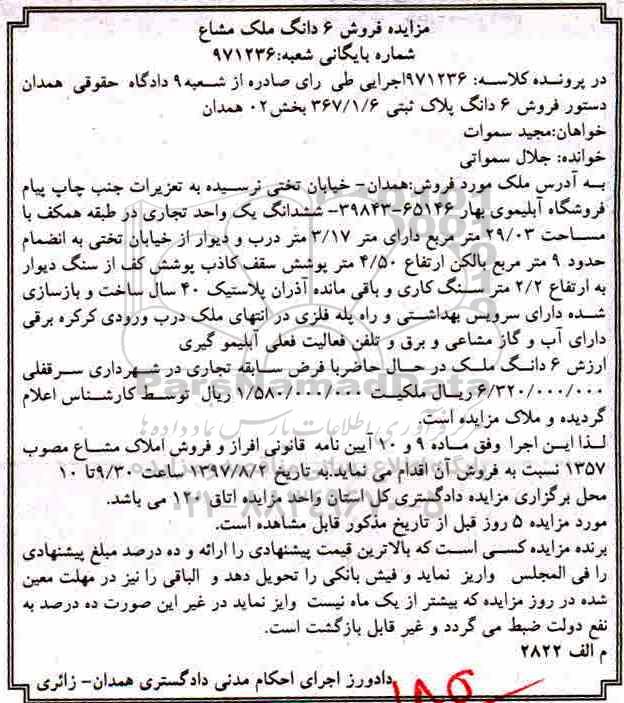 مزایده فروش ۶ دانگ ملک مشاع
شماره بایگانی شعبه:۹۷۱۲۳۶
در پرونده کلاسه: ۹۷۱۲۳۶اجرایی طی رای صادره از شعبه۹ دادگاه حقوقی همدان
دستور فروش ۶ دانگ پلاک ثبتی ۳۶۷/۱/۶ بخش۰۲ همدان
خواهان:مجید سموات
خوانده: جلال سمواتی
به آدرس ملک مورد فروش:همدان- خیابان تختی نرسیده به تعزیرات جنب چاپ پیام
فروشگاه آبلیموی بهار ۶۵۱۴۶-۳۹۸۴۳- ششدانگ یک واحد تجاری در طبقه همکف با
مساحت ۲۹/۰۳ متر مربع دارای متر ۳/۱۷ متر درب و دیوار از خیابان تختی به انضمام
حدود ۹ متر مربع بالکن ارتفاع ۴/۵۰ متر پوشش سقف کاذب پوشش کف از سنگ دیوار
به ارتفاع ۲/۲ متر سنگ کاری و باقی مانده آذران پلاستیک ۴۰ سال ساخت و بازسازی
شده دارای سرویس بهداشتی و راه پله فلزی در انتهای ملک درب ورودی کرکره برقی
دارای آب و گاز مشاعی و برق و تلفن فعالیت فعلی آبلیمو گیری
ارزش ۶ دانگ ملک در حال حاضربا فرض سابقه تجاری در شهرداری سرقفلی
۶/۳۲۰/۰۰۰/۰۰۰ ریال ملکیت ۱/۵۸۰/۰۰۰/۰۰۰ ریال توسط کارشناس اعلام
گردیده و ملاک مزایده است.
لذا این اجرا وفق ماده ۹ و ۱۰ آیین نامه قانونی افراز و فروش املاک مشاع مصوب
۱۳۵۷ نسبت به فروش آن اقدام می نماید.به تاریخ ۱۳۹۷/۸/۲ ساعت ۹/۳۰تا ۱۰
محل برگزاری مزایده دادگستری کل استان واحد مزایده اتاق ۱۲۰ می باشد.
مورد مزایده ۵ روز قبل از تاریخ مذکور قابل مشاهده است.
برنده مزایده کسی است که بالاترین قیمت پیشنهادی را ارائه و ده درصد مبلغ پیشنهادی
را فی المجلس واریز نماید و فیش بانکی را تحویل دهد و الباقی را نیز در مهلت معین
شده در روز مزایده که بیشتر از یک ماه نیست وایز نماید در غیر این صورت ده درصد به
نفع دولت ضبط می گردد و غیر قابل بازگشت است.
م الف ۲۸۲۲
دادورز اجرای احکام مدنی دادگستری همدان- زائری
ParsNamadData
۰۲۱-۸۸۳۴۹۶۷۰-۵